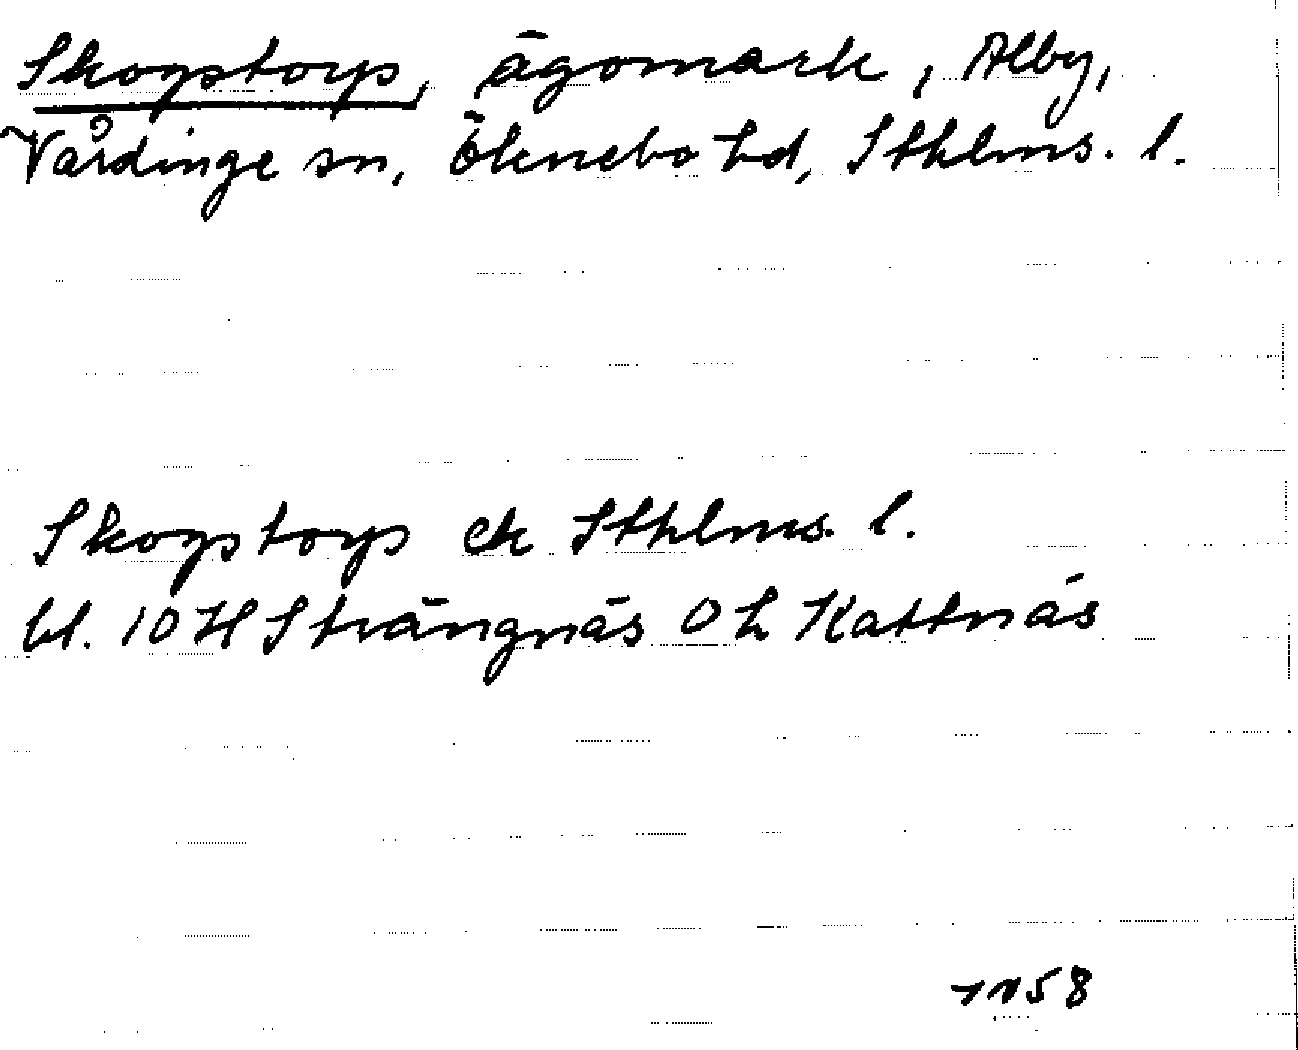 Skogstorp, ägomark, Alby,
Vårdinge sn, Öknebo hd, Sthlms. l.
Skogstorp ek Sthlms. l.
bl. 10 H Strängnäs 0 h Kattnäs